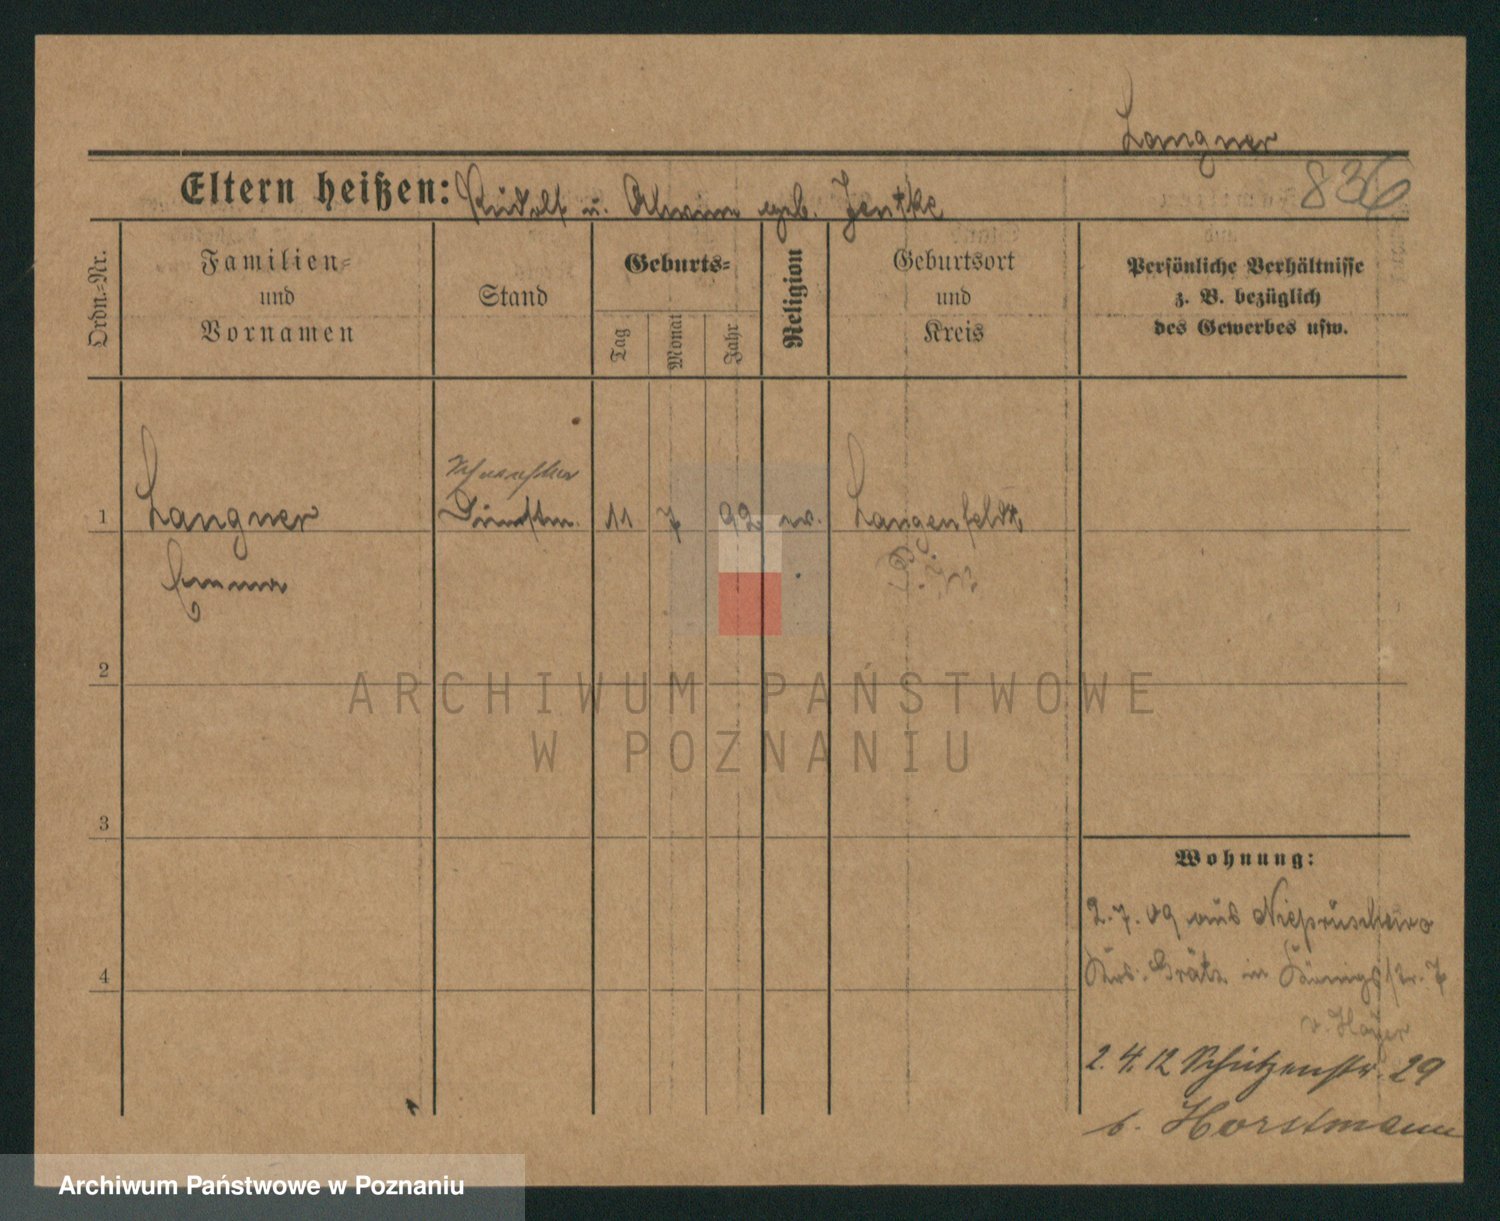 Langner
836
Eltern heißen: Rudolf u. Alwine geb. Jentke
Ordn.-Nr.
Familien-
und
Vornamen
Stand
Geburts-
Tag
Monat
Jahr
Religion
Geburtsort
und
Kreis
Persönliche Verhältnisse
z. B. bezüglich
des Gewerbes usw.
1
Langner
Dienstm.
11
7
92
ev.
Langenfeld
Emma
2
ARCHIWUM PAŃSTWOWE
W POZNANIU
3
Wohnung:
2.7.09 aus Niepruschewo
Krs. Grätz in Königstr. 7
v. Hayer
4
2.4.12 Schützenstr. 29
b. Horstmann
Archiwum Państwowe w Poznaniu